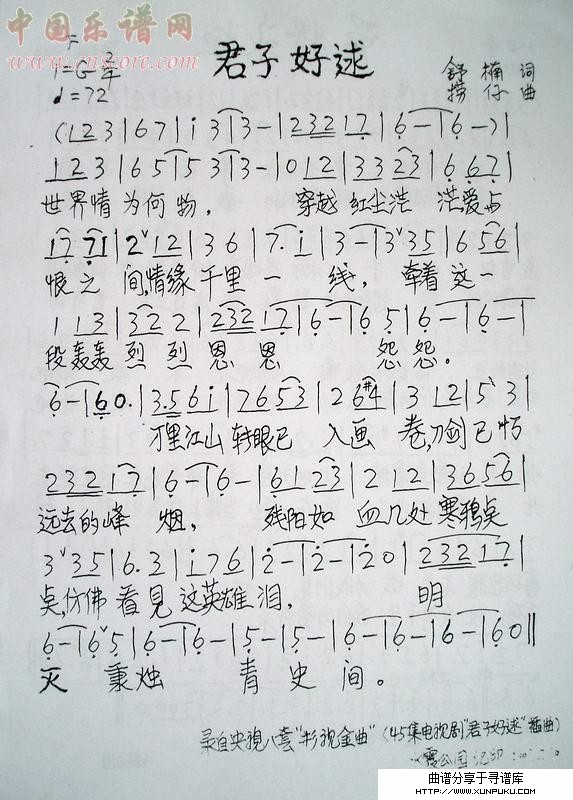 中国乐谱网
www.cnscore.com
君子好逑
1=G 3/4
♩=72
舒楠 词
捞仔 曲
(1 2 3 | 6 7 | i 3 | 3 - | 2 3 2 1 7 | 6 - | 6 -) |
1 2 3 | 6 5 | 5 3 | 3 - | 0 1 2 | 3 3 2 3 | 6 6 7 |
世界情为何物, 穿越红尘浩茫爱与
1 7 7 1 | 2 ∨ 1 2 | 3 6 | 7. i | 3 - | 3 ∨ 3 5 | 6 5 6 |
恨之间,情缘千里一线, 牵着这一
1 1 3 | 3 2 2 | 2 3 2 1 7 | 6 - | 6 5 | 6 - | 6 - |
段轰轰烈烈恩恩 怨怨。
6 - | 6 0. | 3. 5 6 i | 7 6 5 3 | 2 6 #4 | 3 1 2 | 5 ∨ 3 |
万里江山转眼已入画卷,刀剑已忘
2 3 2 1 7 | 6 - | 6 - | 6 1 2 3 | 2 1 2 | 3 6 5 6 |
远去的峰烟, 残阳如血几处寒鸦点
3 ∨ 3 5 | 6. 3 | i 7 6 | 2 - | 2 - | 2 0 | 2 3 2 1 7 |
点,仿佛看见这英雄泪, 明
6 - | 6 ∨ 5 | 6 - | 6 - | 5 - | 5 - | 6 - | 6 - | 6 - | 6 0 ‖
灭秉烛青史间。
录自央视八套"影视金曲"(45集电视剧"君子好逑"插曲)
公园记印
曲谱分享于寻谱库
HTTP://WWW.XUNPUKU.COM